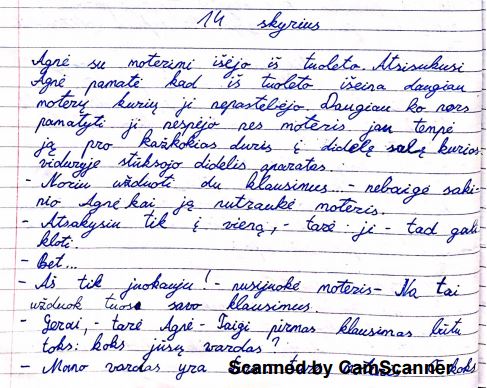 14 skyrius
Agnė su moterimi išėjo iš tuoleto. Atsisukusi
Agnė pamatė kad iš tuoleto išeina daugiau
moterų kurių ji nepastebėjo. Daugiau ko nors
pamatyti ji nespėjo nes moteris jau tempė
ją pro kažkokias duris į didelę salę kurios
viduryje stūksojo didelis aparatas.
- Noriu užduoti du klausimus...- nebaigė saki-
nio Agnė kai ją nutraukė moteris.
- Atsakysiu tik į vieną,- tarė ji - tad gali
kloti.
- Bet...
- Aš tik juokauju!- nusijuokė moteris- Na tai
užduok tuos savo klausimus.
- Gerai,- tarė Agnė- Taigi pirmas klausimas būtų
toks: koks jūsų vardas?
- Mano vardas yra
Scanned by CamScanner